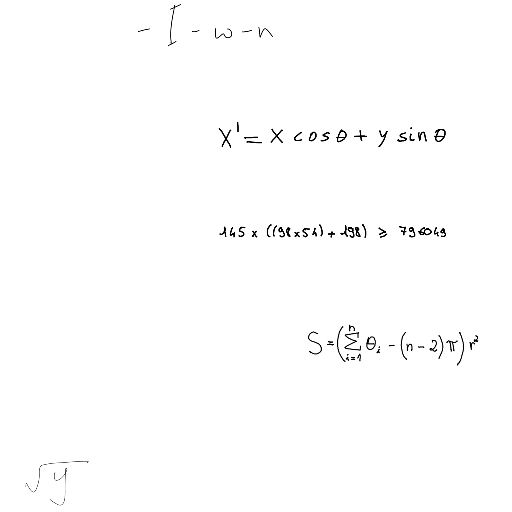 - I - w - n
x' = x cos θ + y sin θ
145 × ((98×54) + 198) ≥ 796049
S = (∑_{i=1}^{n} θ_i - (n-2)π) r²
√y